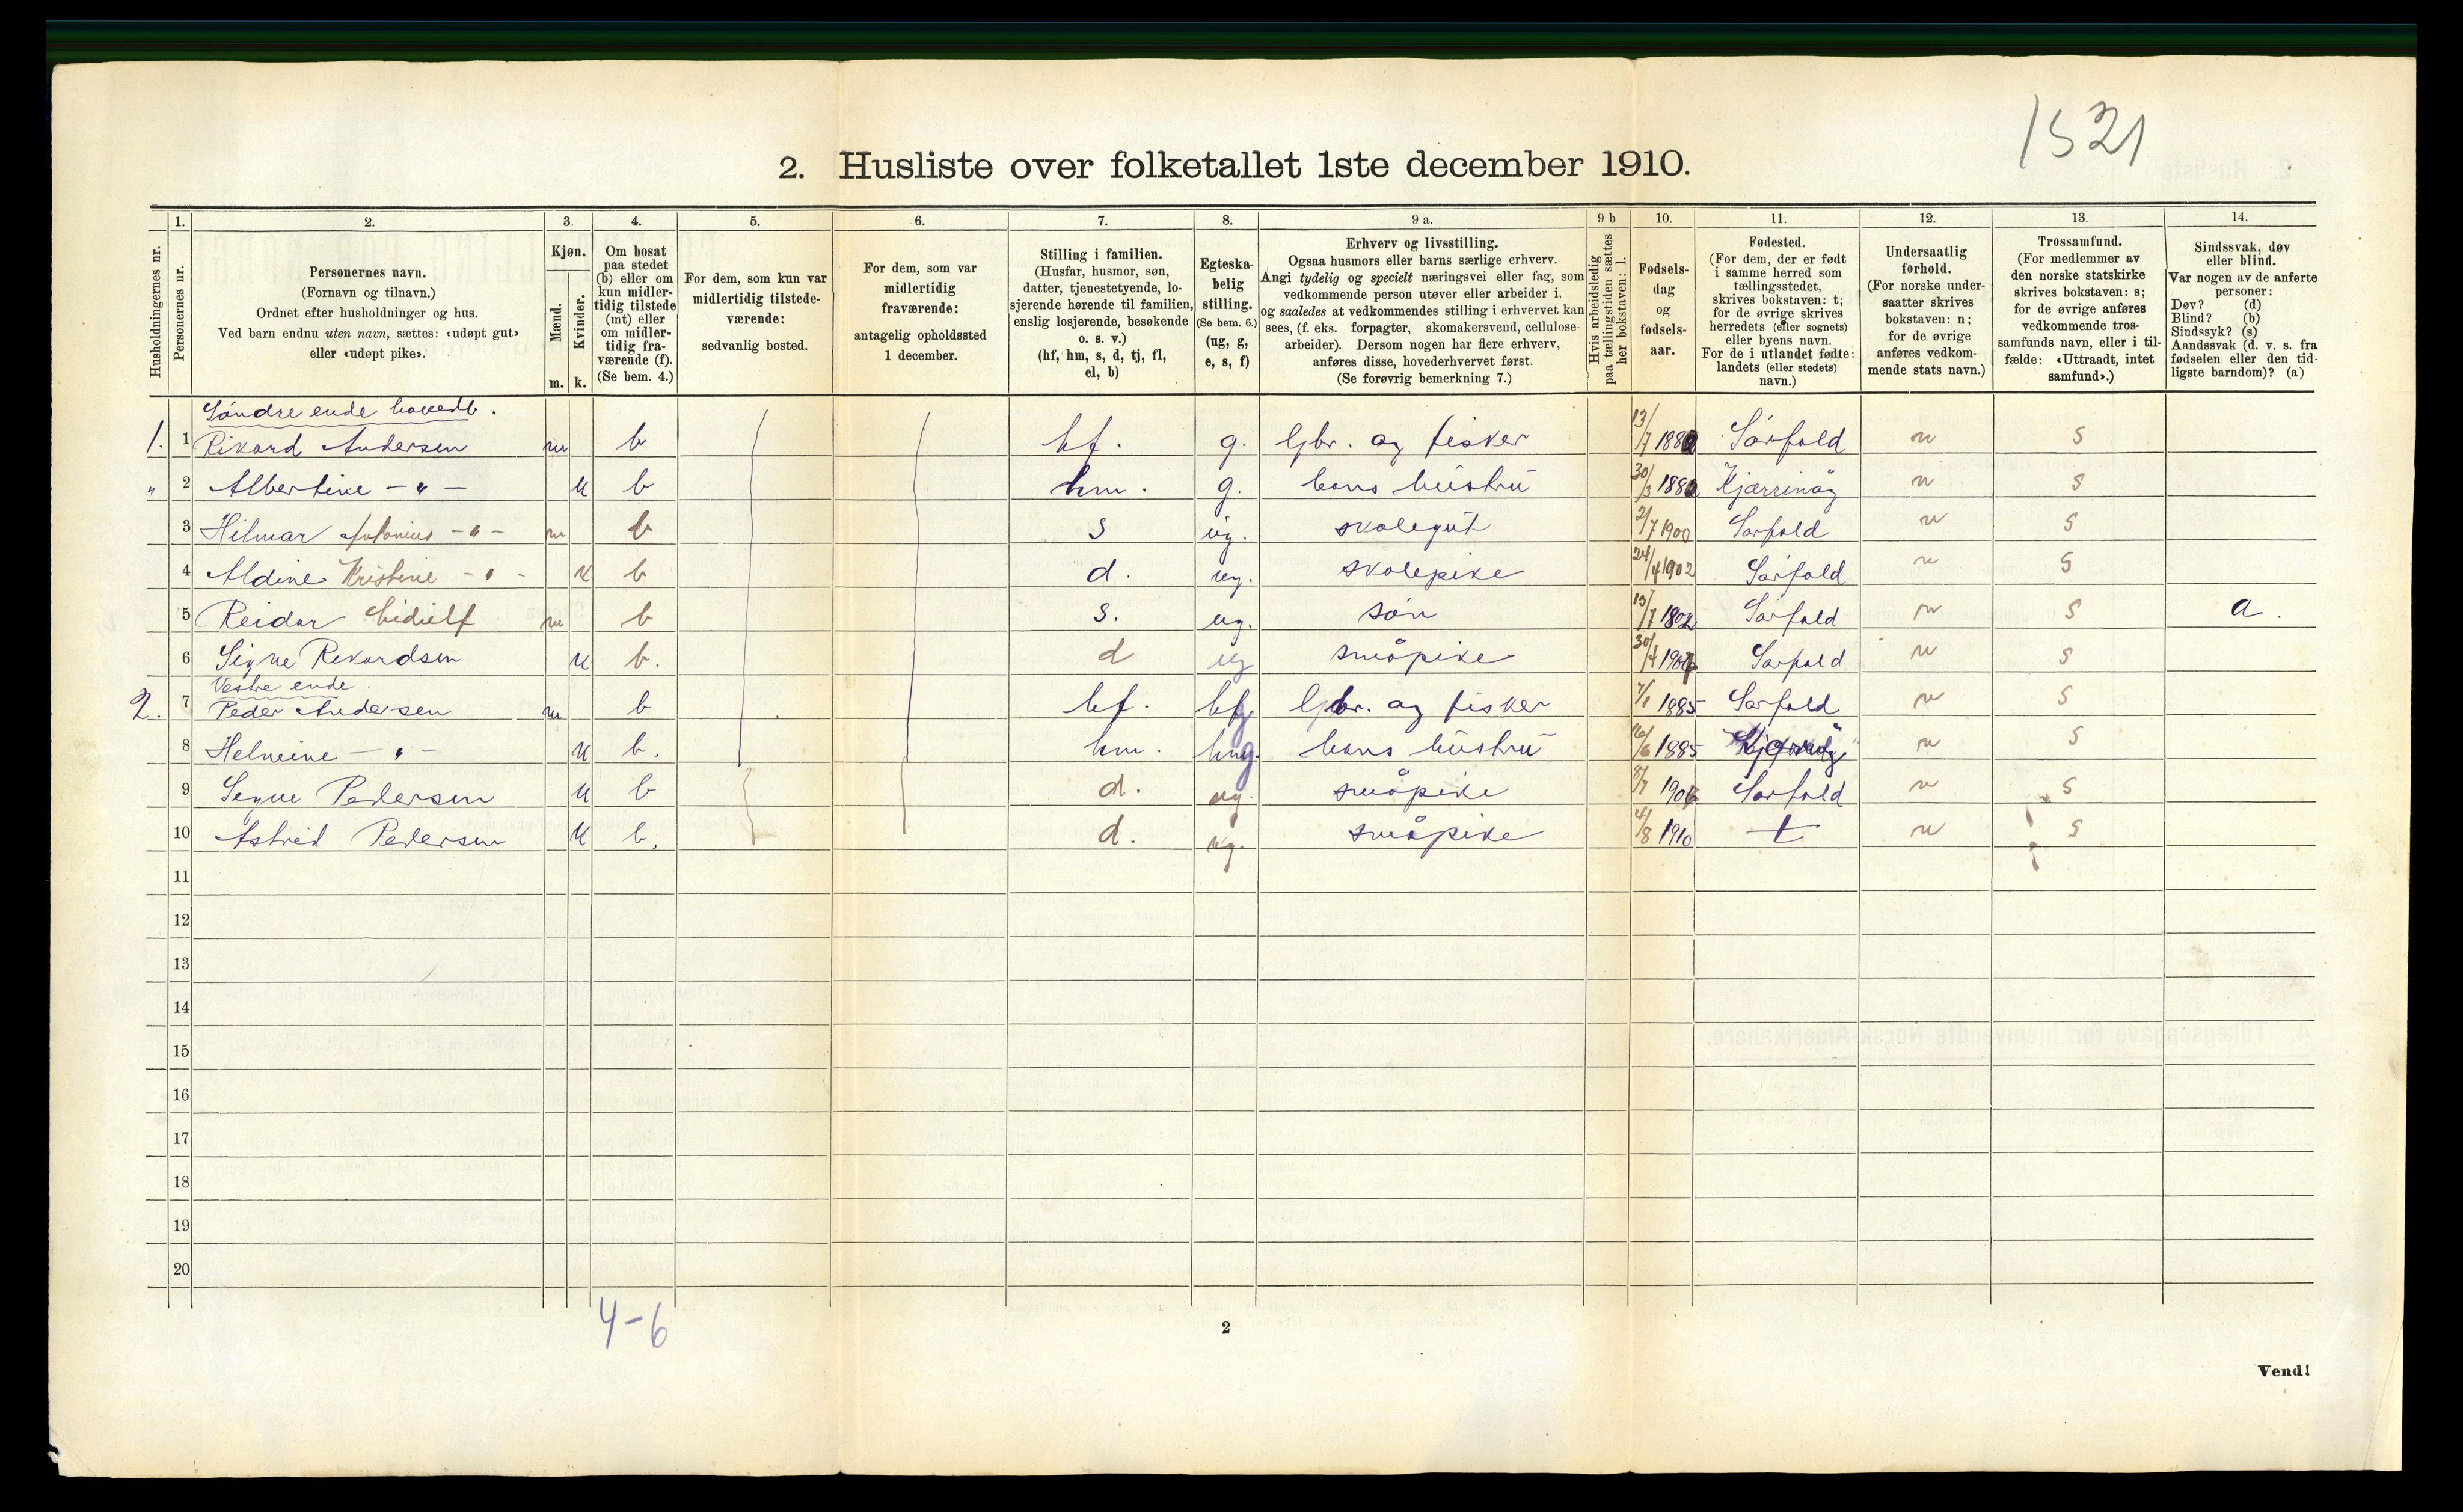 1521
2. Husliste over folketallet 1ste december 1910.
Husholdningernes nr.
1. Personernes nr.
2. Personernes navn. (Fornavn og tilnavn.) Ordnet efter husholdninger og hus. Ved barn endnu uten navn, sættes: «udøpt gut» eller «udøpt pike».
3. Kjøn. Mænd. m. Kvinder. k.
4. Om bosat paa stedet (b) eller om kun midlertidig tilstede (mt) eller om midlertidig fraværende (f). (Se bem. 4.)
5. For dem, som kun var midlertidig tilstedeværende: sedvanlig bosted.
6. For dem, som var midlertidig fraværende: antagelig opholdssted 1 december.
7. Stilling i familien. (Husfar, husmor, søn, datter, tjenestetyende, losjerende hørende til familien, enslig losjerende, besøkende o. s. v.) (hf, hm, s, d, tj, fl, el, b)
8. Egteskabelig stilling. (Se bem. 6.) (ug, g, e, s, f)
9 a. Erhverv og livsstilling. Ogsaa husmors eller barns særlige erhverv. Angi tydelig og specielt næringsvei eller fag, som vedkommende person utøver eller arbeider i, og saaledes at vedkommendes stilling i erhvervet kan sees, (f. eks. forpagter, skomakersvend, cellulosearbeider). Dersom nogen har flere erhverv, anføres disse, hovederhvervet først. (Se forøvrig bemerkning 7.)
9 b Hvis arbeidsledig paa tællingstiden sættes her bokstaven: l.
10. Fødselsdag og fødselsaar.
11. Fødested. (For dem, der er født i samme herred som tællingsstedet, skrives bokstaven: t; for de øvrige skrives herredets (eller sognets) eller byens navn. For de i utlandet fødte: landets (eller stedets) navn.)
12. Undersaatlig forhold. (For norske undersaatter skrives bokstaven: n; for de øvrige anføres vedkommende stats navn.)
13. Trossamfund. (For medlemmer av den norske statskirke skrives bokstaven: s; for de øvrige anføres vedkommende trossamfunds navn, eller i tilfælde: «Uttraadt, intet samfund».)
14. Sindssvak, døv eller blind. Var nogen av de anførte personer: Døv? (d) Blind? (b) Sindssyk? (s) Aandssvak (d. v. s. fra fødselen eller den tidligste barndom)? (a)
Söndre ende hovedb.
1. 1 Rikard Andersen m b hf. g. Gbr. og fisker 13/7 1880 Sörfold n s
" 2 Albertine - " - k b hm. g. hans hüstrü 30/3 1880 Kjærringöy n s
3 Hilmar Antonius - " - m b s üg. skolegüt 2/7 1900 Sörfold n s
4 Aldine Kristine - " - k b d. ug. skolepike 24/4 1902 Sörfold n s
5 Reidar m b s. ug. sön 13/7 Sörfold n s a.
6 Signe Rikardsen k b. d ug småpike 30/4 Sörfold n s
Vestre ende.
2. 7 Peder Andersen m b hf. g Gbr. og fisker 7/1 1885 Sörfold n s
8 Helmine - " - k b. hm. g. hans hüstrü 1885 n s
9 Signe Pedersen k b d. ug. småpike 8/7 1906 Sörfold n s
10 Astrid Pedersen k b. d. ug. småpike 4/8 1910 t n s
11
12
13
14
15
16
17
18
19
20
4-6
2
Vend!